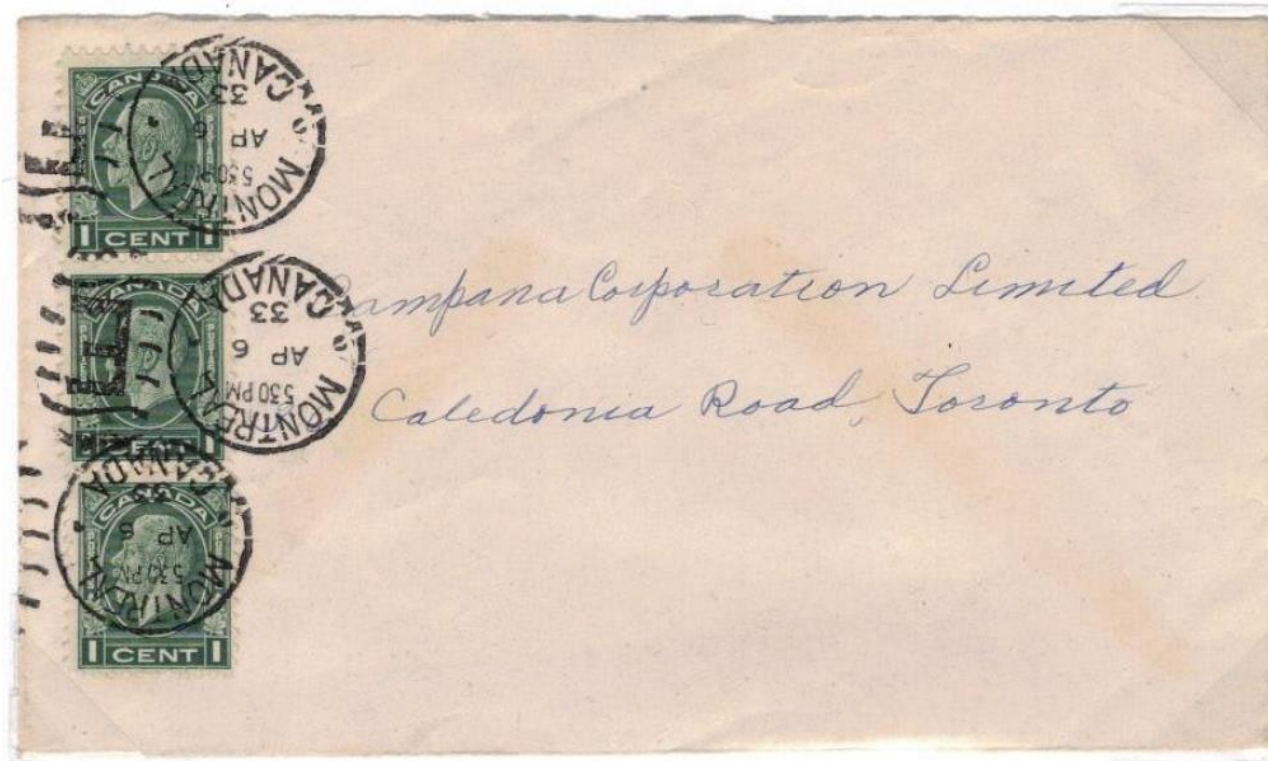 CANADA
1 CENT 1
MONTREAL
5 30 PM
AP 6
33
CANADA
CANADA
CENT 1
MONTREAL
5 30 PM
AP 6
33
CANADA
CANADA
1 CENT 1
MONTREAL
5 30 PM
AP 6
CANADA
Campana Corporation Limited
Caledonia Road, Toronto